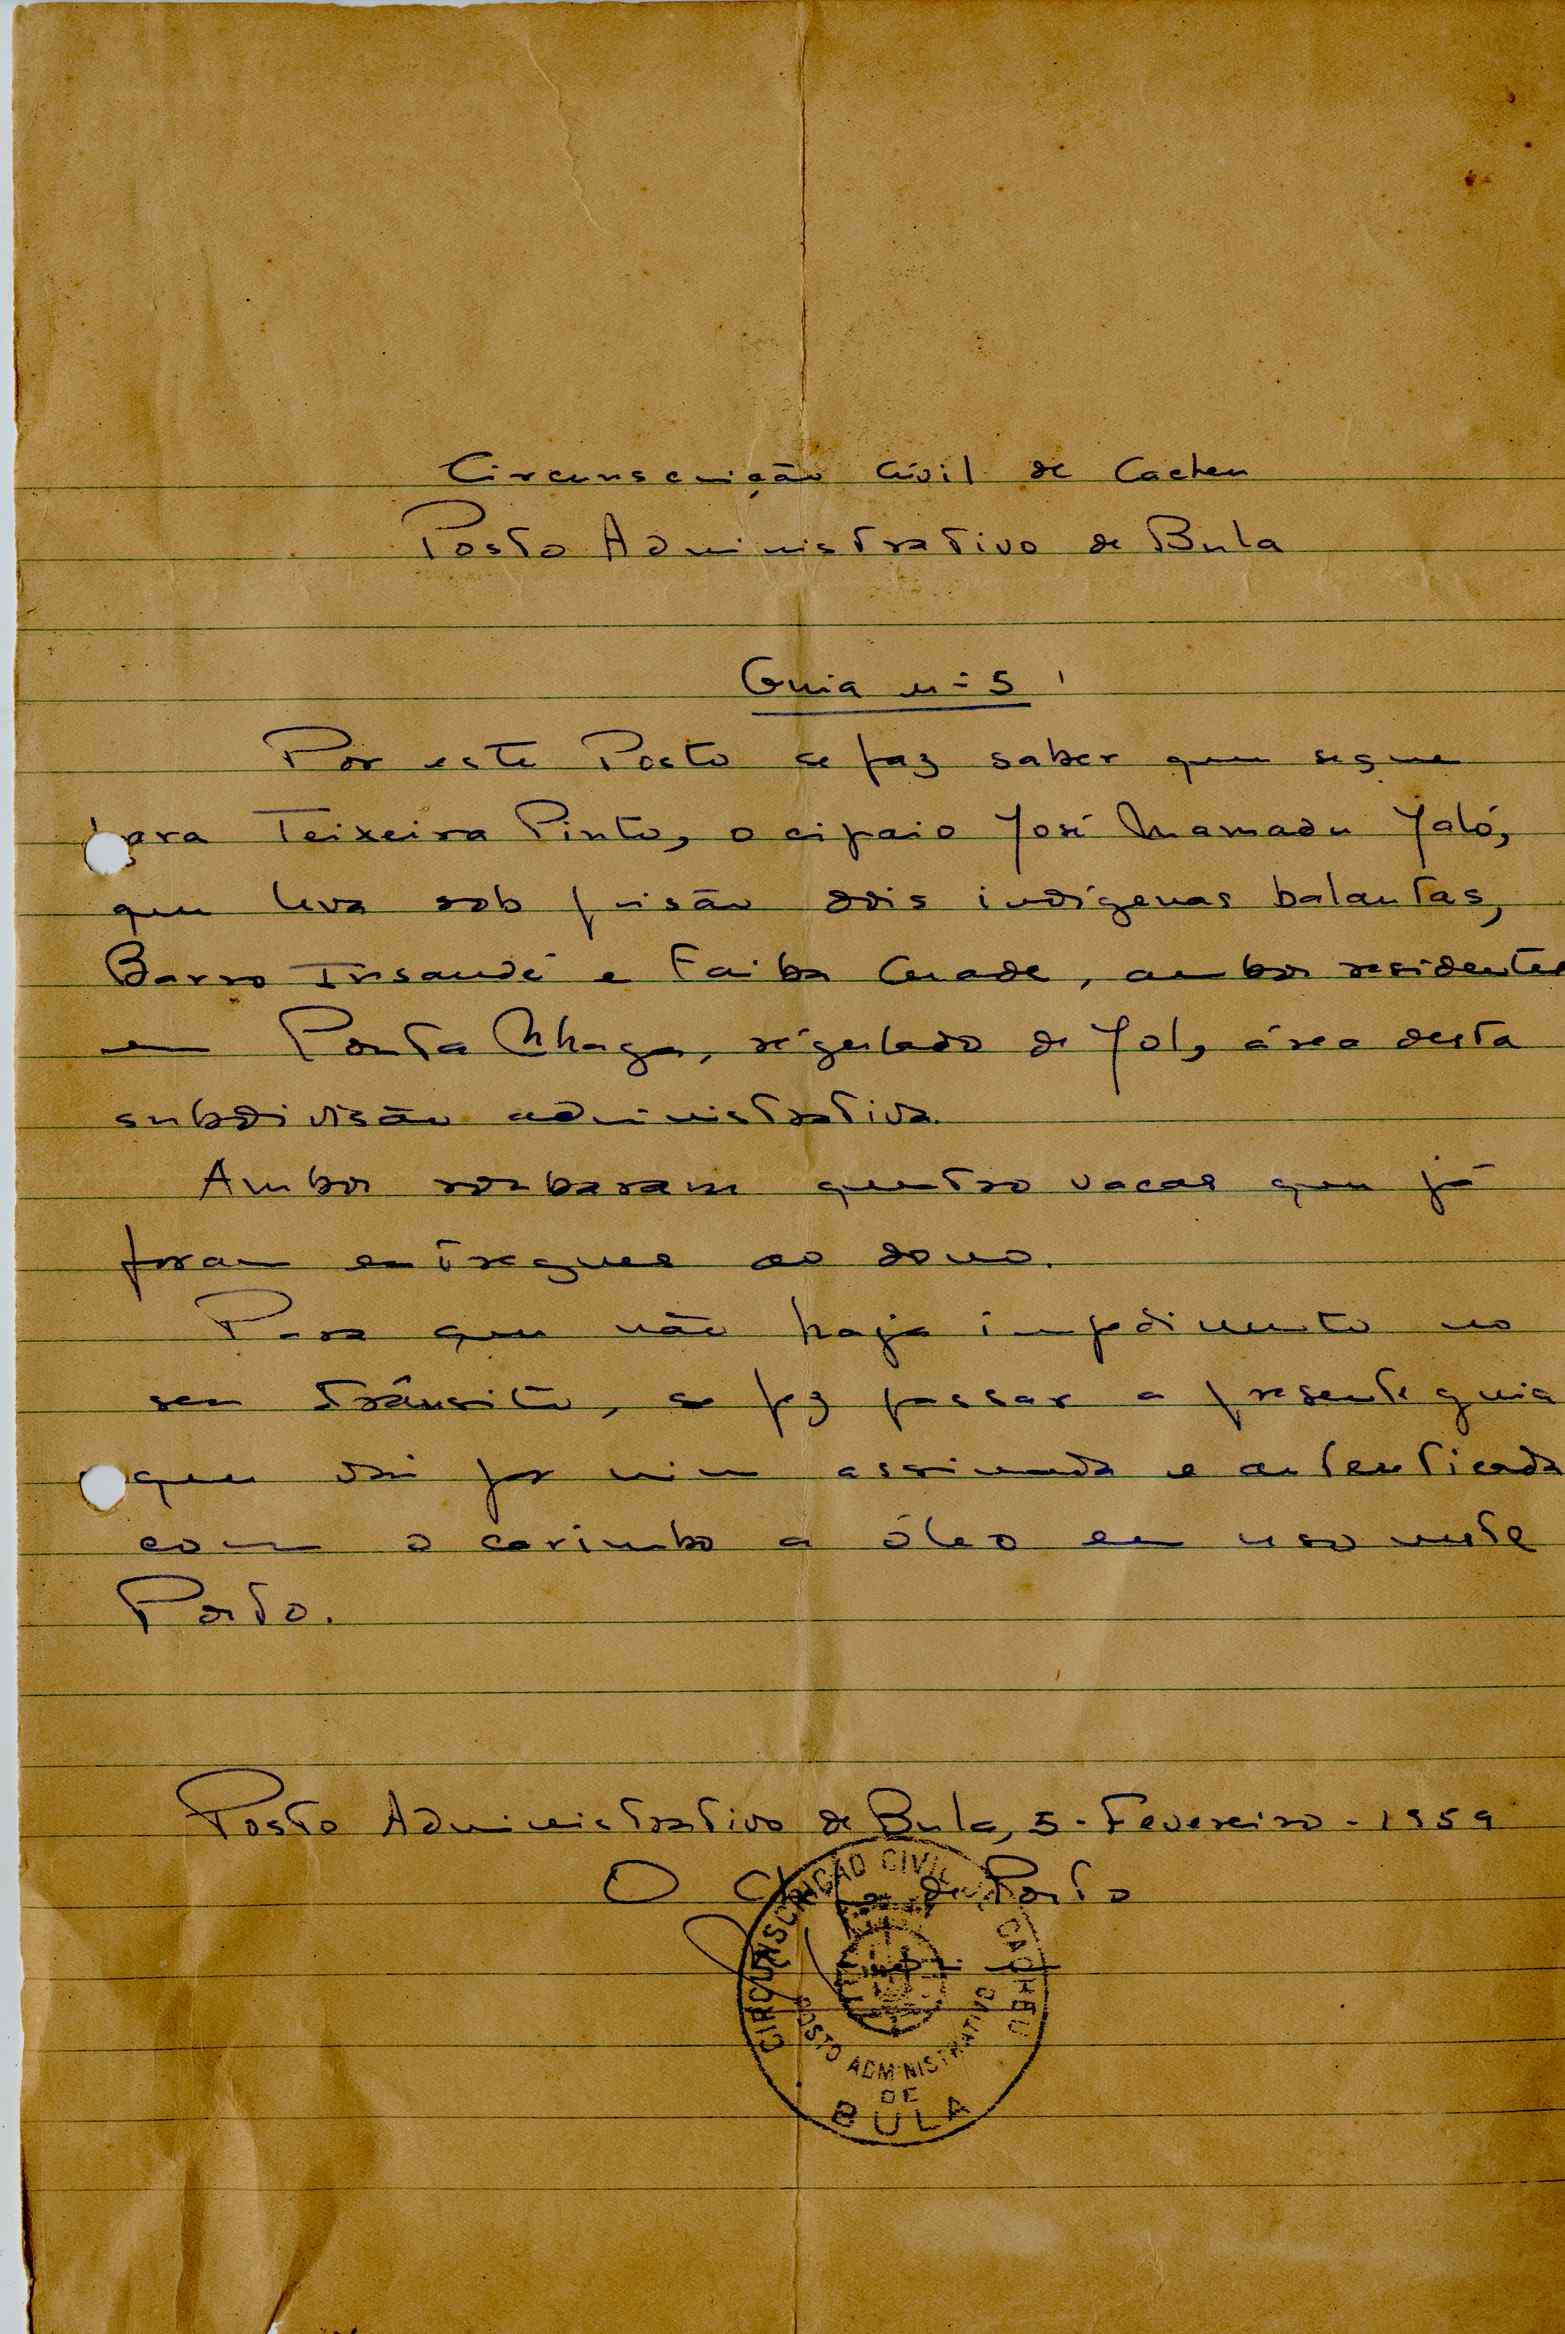 Circunscrição Civil de Cacheu
Posto Administrativo de Bula
Guia nº 5
Por este Posto se faz saber que segue
para Teixeira Pinto, o cipaio José Mamadu Jaló,
que leva sob prisão dois indígenas balantas,
Barro Insandé e Faiba Cnade, ambos residentes
em Ponta Nhaga, regulado de Jol, área desta
subdivisão administrativa.
Ambos roubaram quatro vacas que já
foram entregues ao dono.
Para que não haja impedimento no
seu trânsito, se fez passar a presente guia
que vai por mim assinada e autenticada
com o carimbo a óleo em uso neste
Posto.
Posto Administrativo de Bula, 5-Fevereiro-1959
O Chefe de Posto
CIRCUNSCRIÇÃO CIVIL DE CACHEU
POSTO ADMINISTRATIVO
DE
BULA